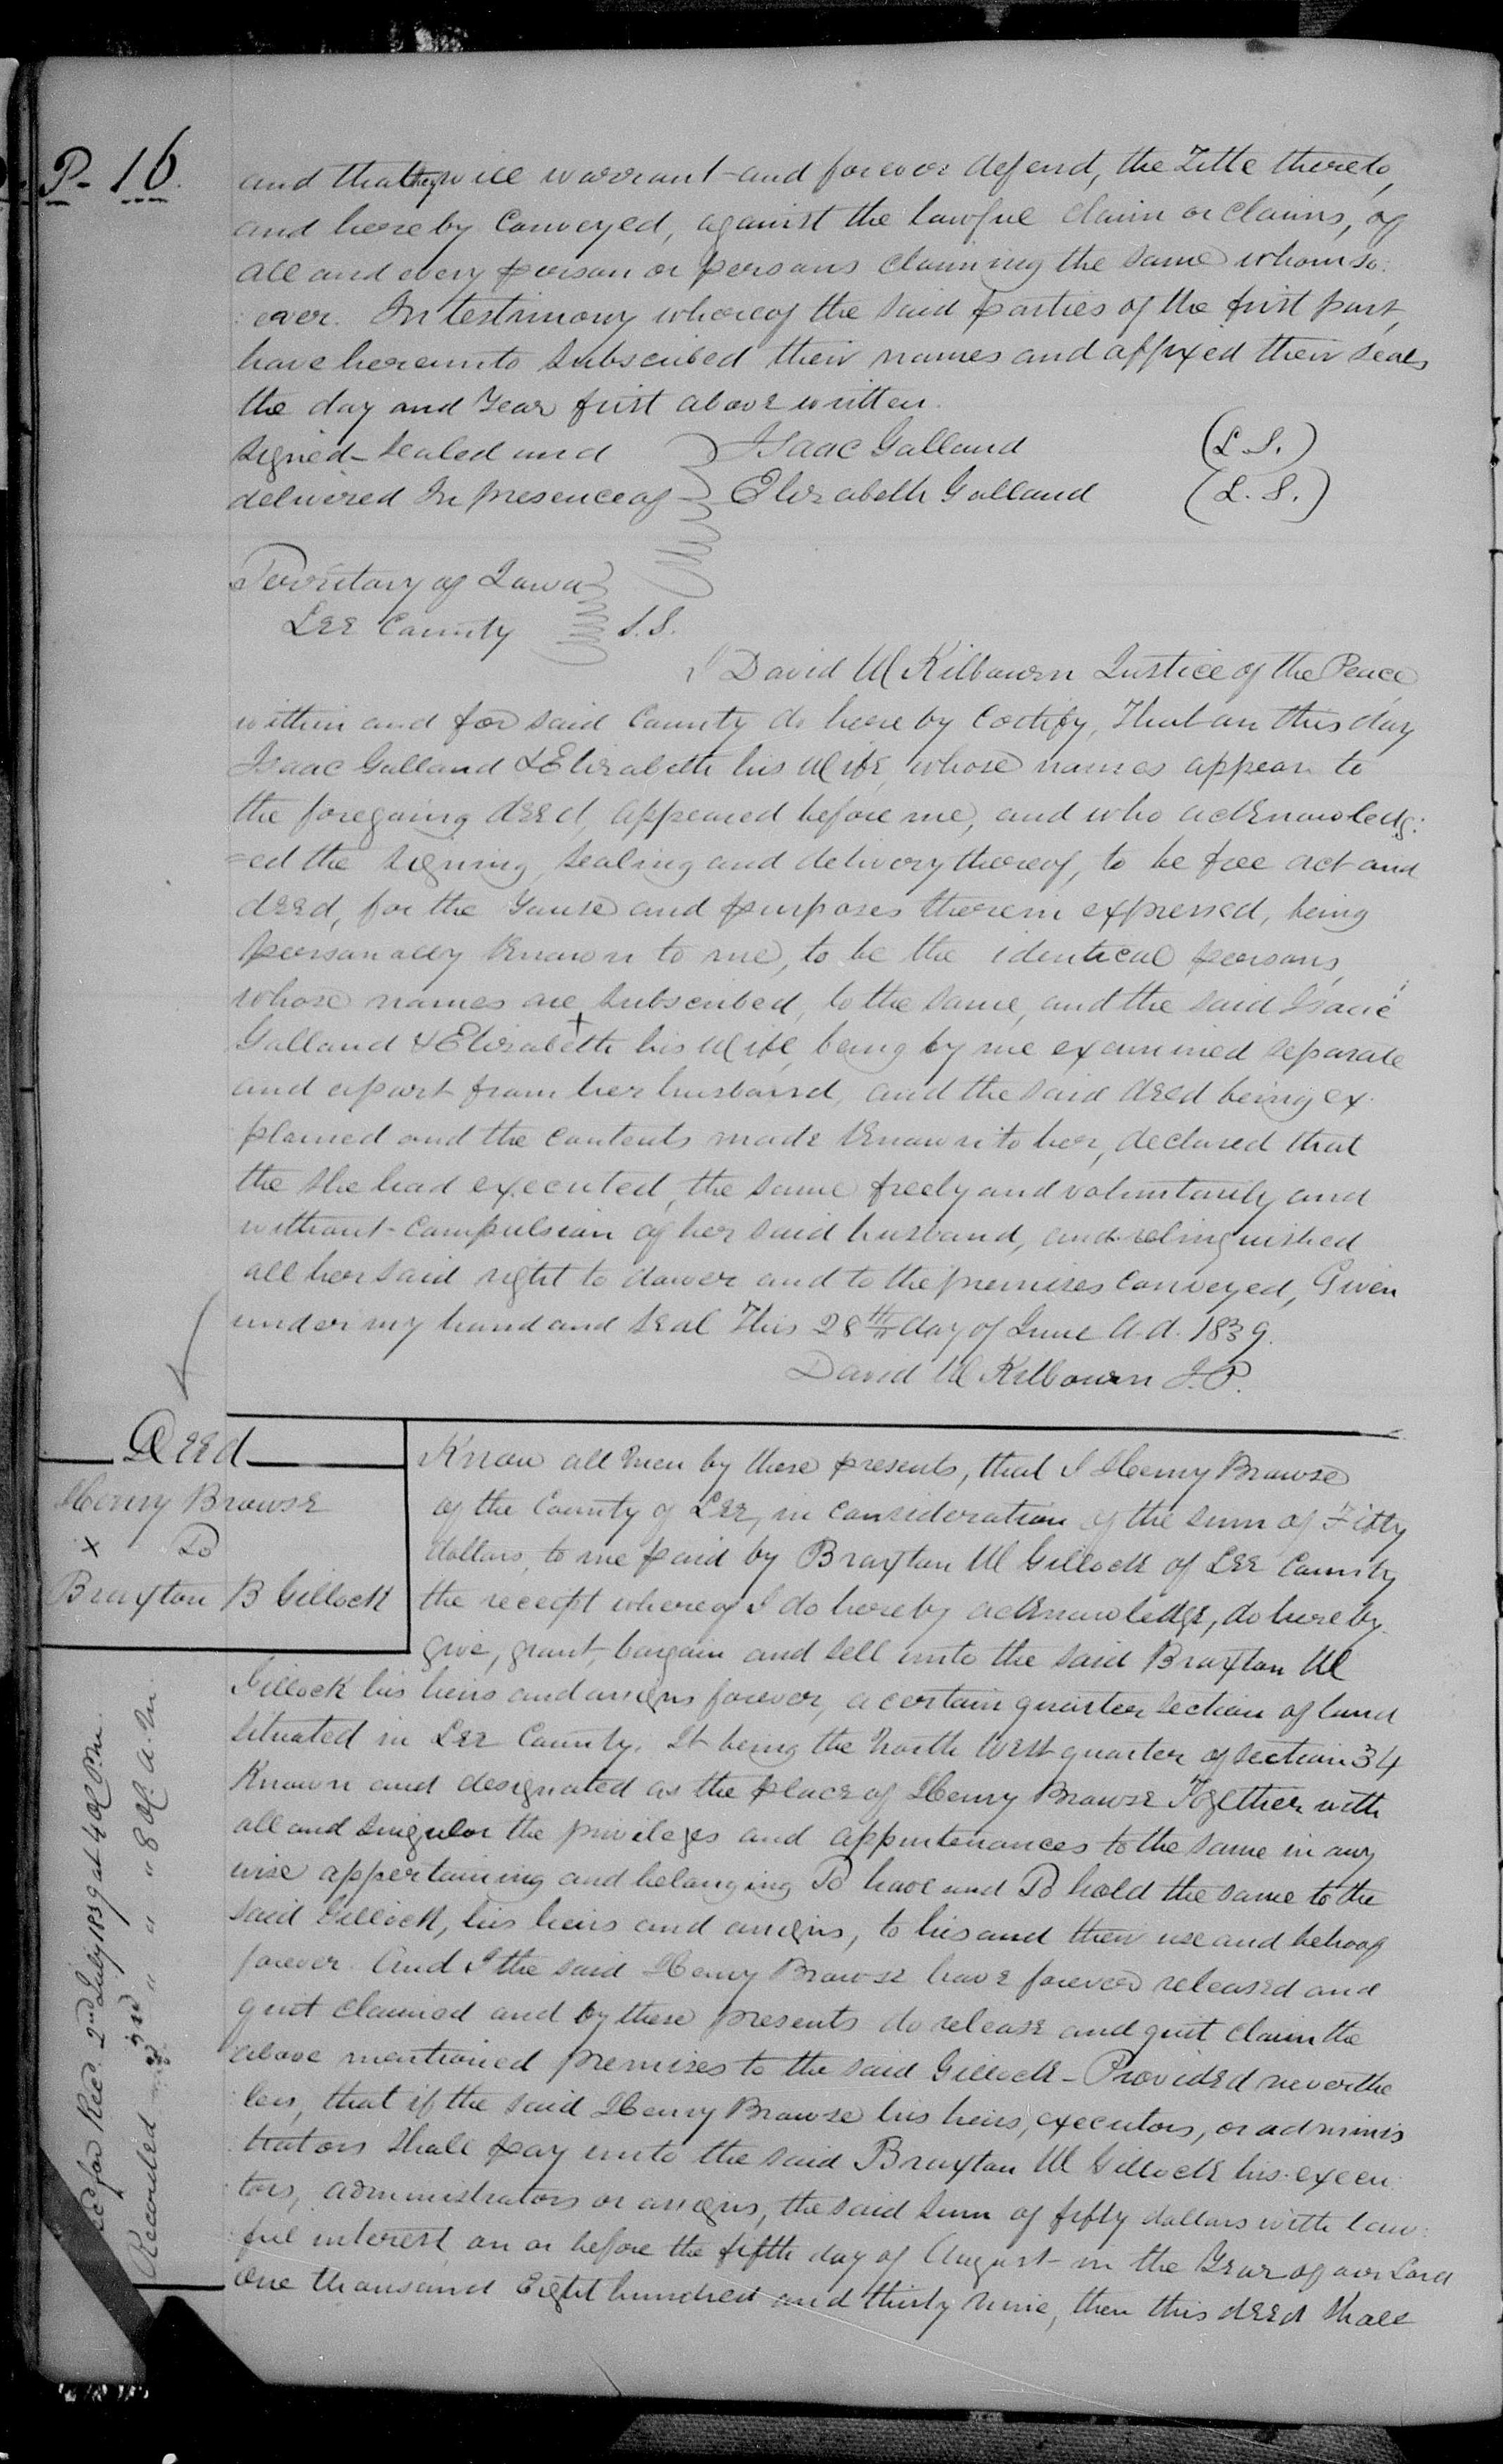 P- 16.
and that they will warrant and forever defend, the Title thereto,
and hereby Conveyed, against the lawful claim or claims, of
all and every person or persons claiming the same whomso:
:ever. In testimony whereof the said parties of the first part,
have hereunto subscribed their names and affixed their seals
the day and Year first above written.
Signed - Sealed and Isaac Galland (L S.)
delivered In presence of Elizabeth Galland (L. S.)
Territory of Iowa
Lee County S.S.
I David W Kilbourn Justice of the Peace
within and for said County do hereby Certify, That on this day
Isaac Galland & Elizabeth his Wife, whose names appear to
the foregoing deed, appeared before me, and who acknowledg:
=ed the signing sealing and delivery thereof, to be free act and
deed, for the and purposes therein expressed, being
personally known to me, to be the identical persons,
whose names are subscribed, to the same, and the said Isaac
Galland & Elizabeth his Wife, being by me examined separate
and apart from her husband, and the said deed being ex.
plained and the contents made known to her, declared that
the she had executed, the same freely and voluntarily and
without compulsion of her said husband, and relinquished
all her said right to dower and to the premises conveyed, Given
under my hand and seal This 28th day of June A.d. 1839.
David W Kilbourn J.P.
Deed
Henry Browse
x To
Braxton B Gillock
Know all men by these presents, that I Henry Browse
of the County of Lee, in consideration of the sum of Fifty
dollars, to me paid by Braxton W Gillock of Lee County
the receipt whereof I do hereby acknowledge, do hereby
give, grant, bargain and sell unto the said Braxton W
Gillock his heirs and assigns forever, a certain quarter section of land
situated in Lee County. It being the North West quarter of section 34
Known and designated as the place of Henry Browse Together with
all and singular the privileges and appurtenances to the same in any
wise appertaining and belonging To have and To hold the same to the
said Gillock, his heirs and assigns, to his and their use and behoof
forever. And I the said Henry Browse have forever released and
quit claimed and by these presents do release and quit claim the
above mentioned premises to the said Gillock - Provided neverthe
:less, that if the said Henry Browse his heirs, executors, or adminis
:trators shall pay unto the said Braxton W Gillock his execu
:tors, administrators or assigns, the said sum of fifty dollars with law:
:ful interest, on or before the fifth day of August in the Year of our Lord
One thousand Eight hundred and thirty nine, then this deed shall
for Rec. 2nd July 1839 at 4 O'C P.M.
Recorded 3rd " " " 8 O'C A.M.